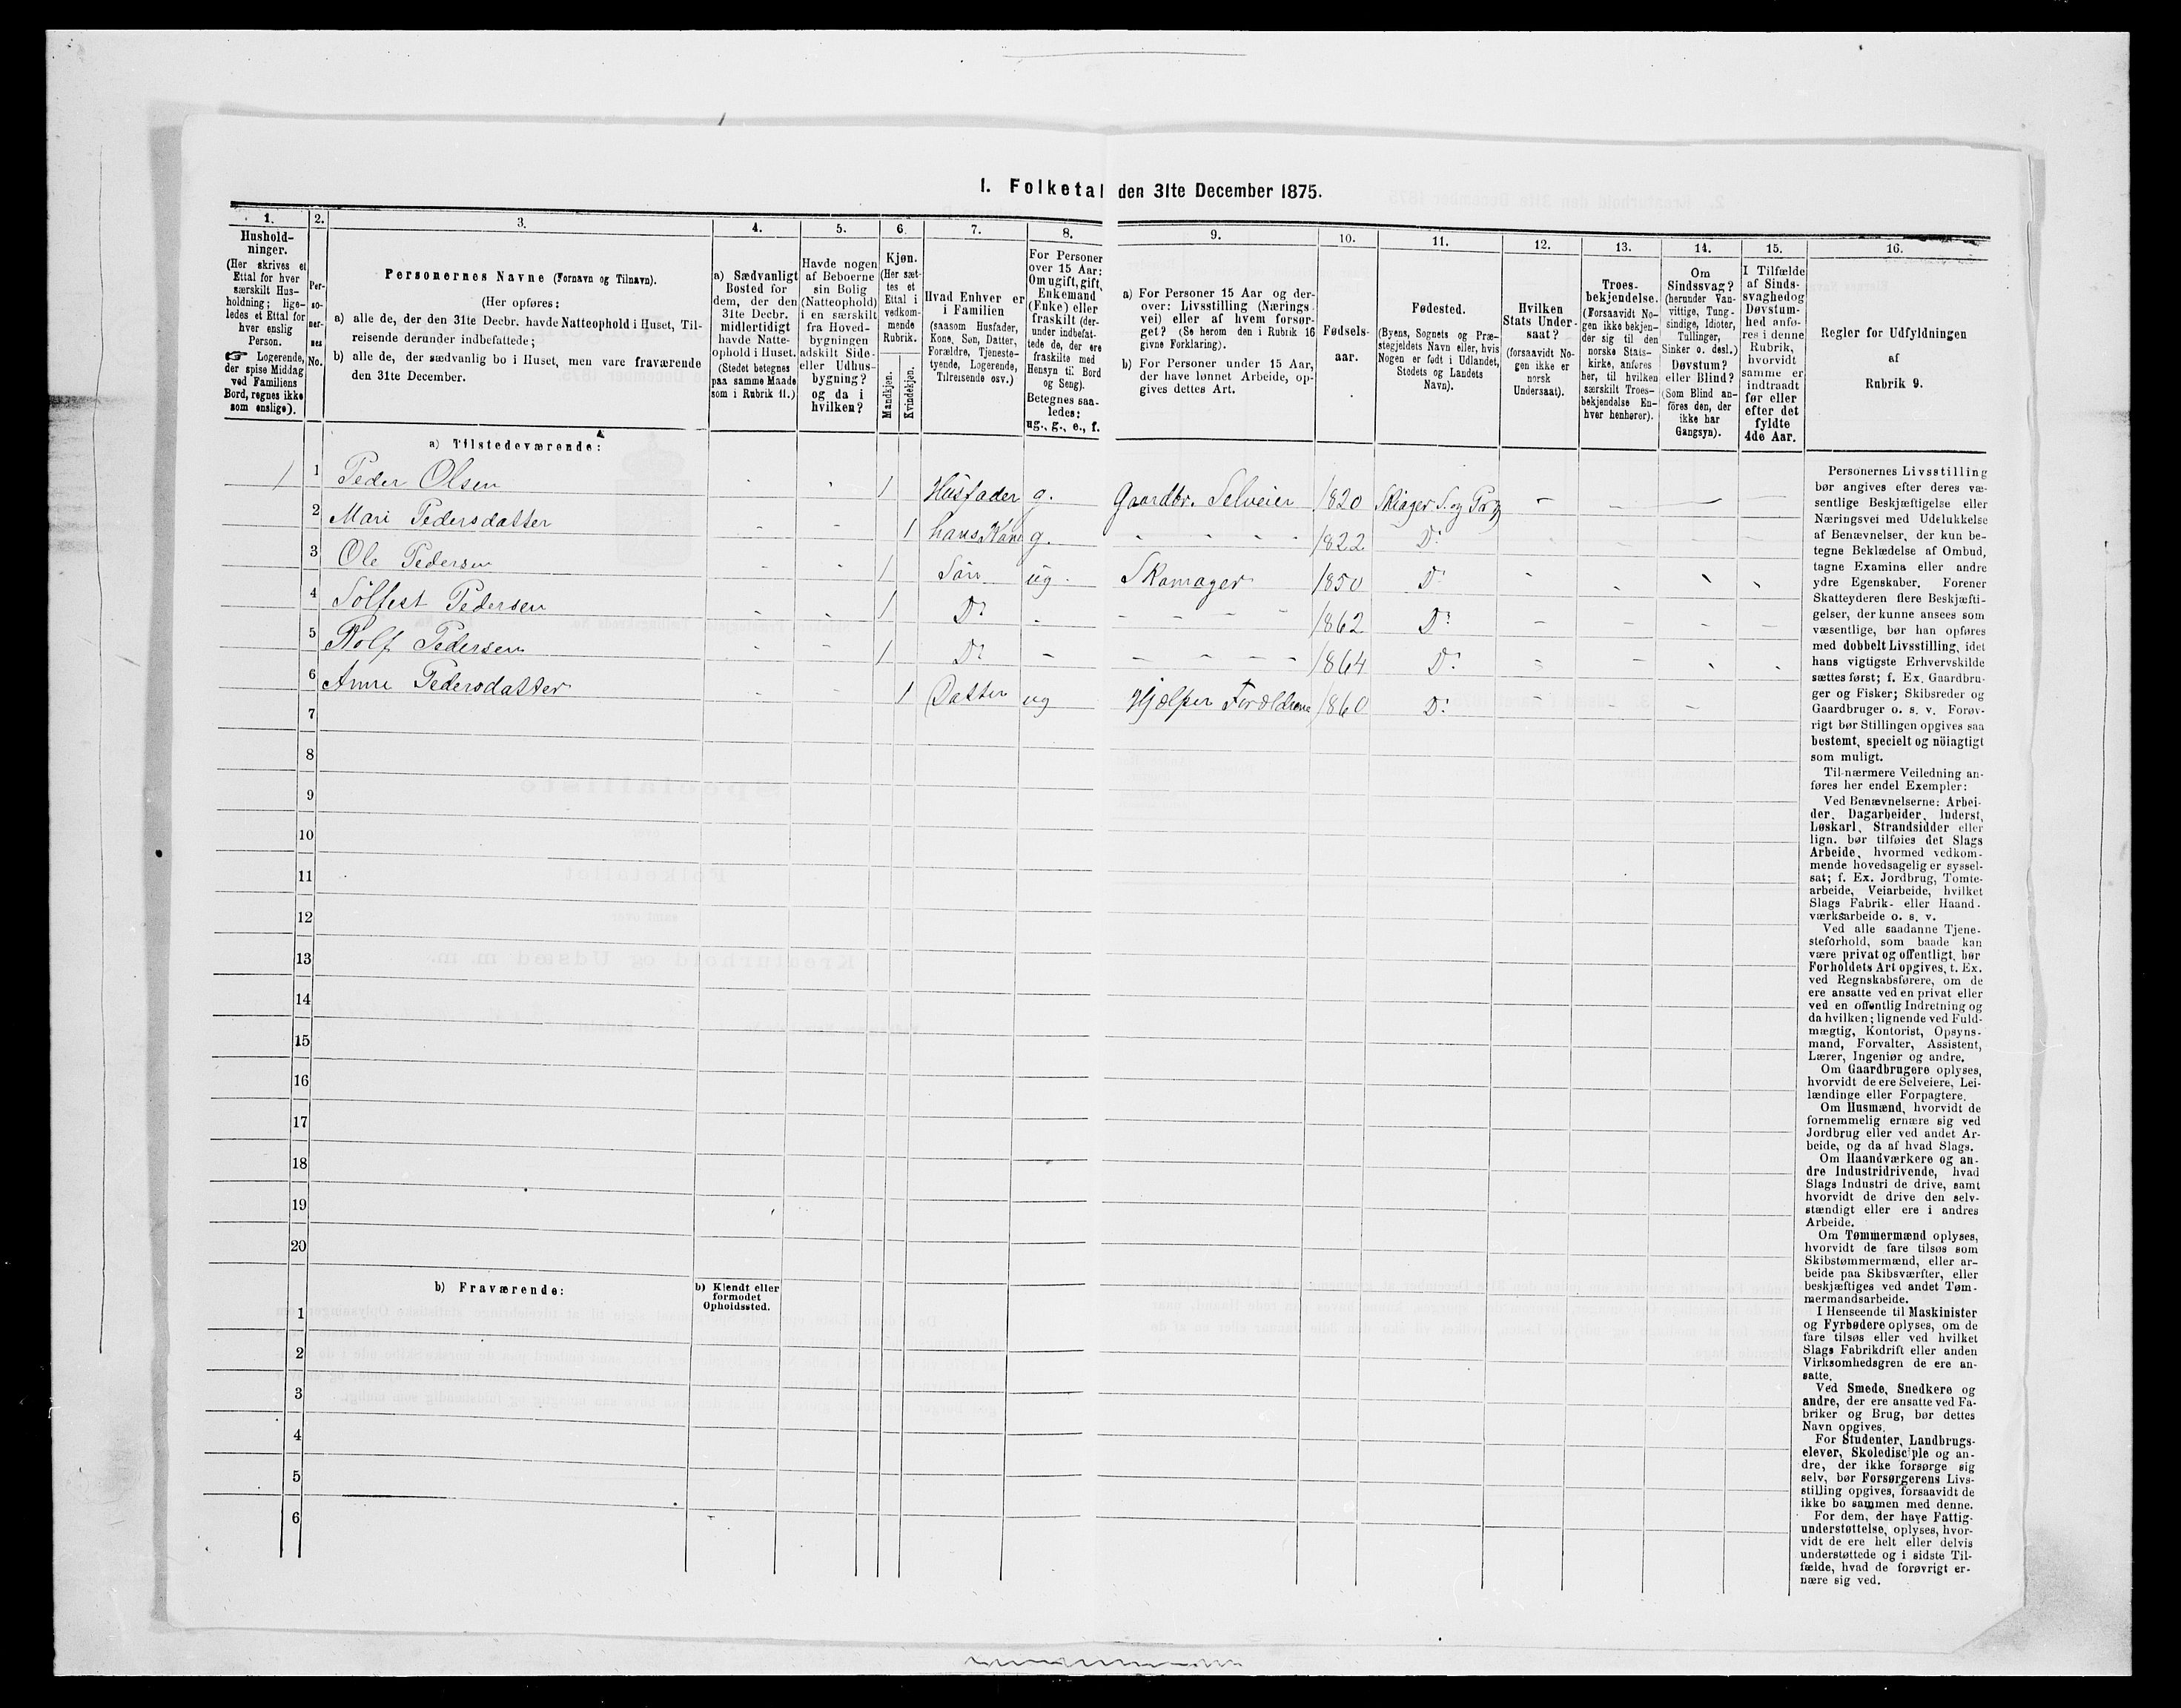 1. Folketal den 31te December 1875.
1. 2. 3. 4. 5. 6. 7. 8. 9. 10. 11. 12. 13. 14. 15. 16.
Hushold-
ninger.
(Her skrives et
Ettal for hver
særskilt Hus-
holdning; lige-
ledes et Ettal for
hver enslig
Person.
☞ Logerende,
der spise Middag
ved Familiens
Bord, regnes ikke
som enslige).
Per-
so-
ner-
nes
No.
Personernes Navne (Fornavn og Tilnavn).
(Her opføres:
a) alle de, der den 31te Decbr. havde Natteophold i Huset, Til-
reisende derunder indbefattede;
b) alle de, der sædvanlig bo i Huset, men vare fraværende
den 31te December.
a) Sædvanligt
Bosted for
dem, der den
31te Decbr.
midlertidigt
havde Natte-
ophold i Huset.
(Stedet betegnes
paa samme Maade
som i Rubrik 11.)
Havde nogen
af Beboerne
sin Bolig
(Natteophold)
i en særskilt
fra Hoved-
bygningen
adskilt Side-
eller Udhus-
bygning?
og da i
hvilken?
Kjøn.
(Her sæt-
tes et
Ettal i
vedkom-
mende
Rubrik.
Mandkjøn.
Kvindekjøn.
Hvad Enhver er
i Familien
(saasom Husfader,
Kone, Søn, Datter,
Forældre, Tjeneste-
tyende, Logerende,
Tilreisende osv.)
For Personer
over 15 Aar:
Om ugift, gift,
Enkemand
(Enke) eller
fraskilt (der-
under indbefat-
tede de, der ere
fraskilte med
Hensyn til Bord
og Seng).
Betegnes saa-
ledes:
ug., g., e., f.
a) For Personer 15 Aar og der-
over: Livsstilling (Nærings-
vei) eller af hvem forsør-
get? (Se herom den i Rubrik 16
givne Forklaring).
b) For Personer under 15 Aar,
der have lønnet Arbeide, op-
gives dettes Art.
Fødsels-
aar.
Fødested.
(Byens, Sognets og Præ-
stegjeldets Navn eller, hvis
Nogen er født i Udlandet,
Stedets og Landets
Navn).
Hvilken
Stats Under-
saat?
(forsaavidt No-
gen ikke er
norsk
Undersaat).
Troes-
bekjendelse.
(Forsaavidt No-
gen ikke bekjen-
der sig til den
norske Stats-
kirke, anføres
her, til hvilken
særskilt Troes-
bekjendelse En-
hver henhører).
Om
Sindssvag?
(herunder Van-
vittige, Tung-
sindige, Idioter,
Tullinger,
Sinker o. desl.)
Døvstum?
eller Blind?
(Som Blind an-
føres den, der
ikke har
Gangsyn).
I Tilfælde
af Sinds-
svaghed og
Døvstum-
hed anfø-
res i denne
Rubrik,
hvorvidt
samme er
indtraadt
før eller
efter det
fyldte
4de Aar.
Regler for Udfyldningen
af
Rubrik 9.
a) Tilstedeværende:
1 1 Peder Olsen - - 1 Husfader g. Gaardbr. Selveier 1820 Skiager S. og Prg - - - -
2 Mari Pedersdatter - - 1 hans Kone g. - - - - 1822 Do - - - -
3 Ole Pedersen - - 1 Søn ug. Skomager 1850 Do - - - -
4 Sölfest Pedersen - - 1 Do - - - - - 1862 Do - - - -
5 Rolf Pedersen - - 1 Do - - - - - 1864 Do - - - -
6 Anne Pedersdatter - - 1 Datter ug Hjælper Forældrene 1860 Do - - -
7
8
9
10
11
12
13
14
15
16
17
18
19
20
b) Fraværende:
b) Kjendt eller
formodet
Opholdssted.
1
2
3
4
5
6
Personernes Livsstilling
bør angives efter deres væ-
sentlige Beskjæftigelse eller
Næringsvei med Udelukkelse
af Benævnelser, der kun be-
tegne Beklædelse af Ombud,
tagne Examina eller andre
ydre Egenskaber. Forener
Skatteyderen flere Beskjæfti-
gelser, der kunne ansees som
væsentlige, bør han opføres
med dobbelt Livsstilling, idet
hans vigtigste Erhvervskilde
sættes først; f. Ex. Gaardbru-
ger og Fisker; Skibsreder og
Gaardbruger o. s. v. Forøv-
rigt bør Stillingen opgives saa
bestemt, specielt og nöiagtigt
som muligt.
Til nærmere Veiledning an-
føres her endel Exempler:
Ved Benævnelserne: Arbei-
der, Dagarbeider, Inderst,
Løskarl, Strandsidder eller
lign. bør tilføies det Slags
Arbeide, hvormed vedkom-
mende hovedsagelig er syssel-
sat; f. Ex. Jordbrug, Tomte-
arbeide, Veiarbeide, hvilket
Slags Fabrik- eller Haand-
værksarbeide o. s. v.
Ved alle saadanne Tjene-
steforhold, som baade kan
være privat og offentligt, bør
Forholdets Art opgives, t. Ex.
ved Regnskabsførere, om de
ere ansatte ved en privat eller
ved en offentlig Indretning og
da hvilken; lignende ved Fuld-
mægtig, Kontorist, Opsyns-
mand, Forvalter, Assistent,
Lærer, Ingeniør og andre.
Om Gaardbrugere oplyses,
hvorvidt de ere Selveiere, Lei-
lændinge eller Forpagtere.
Om Husmænd, hvorvidt de
fornemmelig ernære sig ved
Jordbrug eller ved andet Ar-
beide, og da af hvad Slags.
Om Haandværkere og an-
dre Industridrivende, hvad
Slags Industri de drive, samt
hvorvidt de drive den selv-
stændigt eller ere i andres
Arbeide.
Om Tømmermænd oplyses,
hvorvidt de fare tilsøs som
Skibstømmermænd, eller ar-
beide paa Skibsværfter, eller
beskjæftiges ved andet Tøm-
mermandsarbeide.
I Henseende til Maskinister
og Fyrbødere oplyses, om de
fare tilsøs eller ved hvilket
Slags Fabrikdrift eller anden
Virksomhedsgren de ere an-
satte.
Ved Smede, Snedkere og
andre, der ere ansatte ved Fa-
briker og Brug, bør dettes
Navn opgives.
For Studenter, Landbrugs-
elever, Skoledisciple og an-
dre, der ikke forsørge sig
selv, bør Forsørgerens Livs-
stilling opgives, forsaavidt de
ikke bo sammen med denne.
For dem, der have Fattig-
understøttelse, oplyses, hvor-
vidt de ere helt eller delvis
understøttede og i sidste Til-
fælde, hvad de forøvrigt er-
nære sig ved.